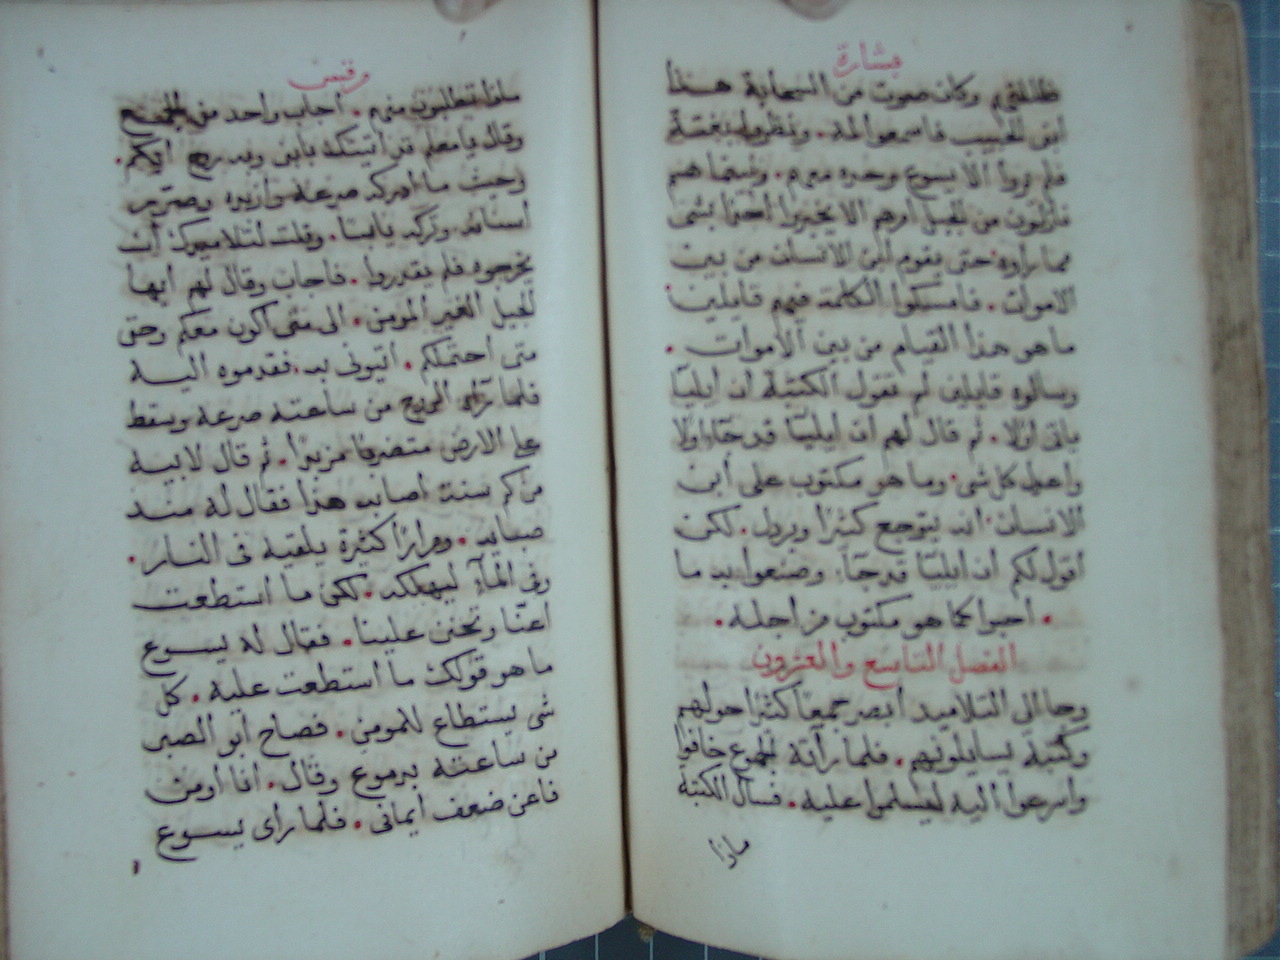 بشارة
ظللتهم وكان صوت من السحابة هذا
ابني الحبيب فاسمعوا له. ونظروا بغتة
فلم يروا الا يسوع وحده معهم. وفيما هم
نازلون من الجبل امرهم الا يخبروا احدًا بشي
مما راوه حتى يقوم ابن الانسان من بين
الاموات. فامسكوا الكلمة فيهم قايلين
ما هو هذا القيام من بين الاموات.
وسالوه قايلين لم تقول الكتبة ان ايليّا
ياتي اولا. ثم قال لهم ان ايليّا قد جاء اولا
واعد كل شي. وما هو مكتوب على ابن
الانسان انه يتوجع كثيرًا ويرذل. لكن
اقول لكم ان ايليّا قد جاء وصنعوا به ما
احبوا كما هو مكتوب من اجله.
الفصل التاسع والعشرون
وجا الى التلاميذ ابصر جمعًا كثيرًا حولهم
وكتبة يسايلونهم. فلما رآته الجموع خافوا
واسرعوا اليه ليسلموا عليه. فسال الكتبة
ماذا
مرقس
ماذا تطلبون منهم. اجاب واحد من الجمع
وقال يا معلم قد اتيتك بابني وبه روح ابكم.
وحيث ما ادركه صرعه وازبده وصرّر
اسنانه وتركه يابسًا. وقلت لتلاميذك ان
يخرجوه فلم يقدروا. فاجاب وقال لهم ايها
الجيل الغير المومن. الى متى اكون معكم وحتى
متى احتملكم. ايتوني به. فقدموه اليه
فلما رآى الروح من ساعته صرعه وسقط
على الارض متضربًا مزبدًا. ثم قال لابيه
من كم سنة اصابه هذا فقال له منذ
صبايه. ومرارًا كثيرة يلقيه في النار.
وفي المآء ليهلكه. لكن ما استطعت
اعنّا وتحنن علينا. فقال له يسوع
ما هو قولك ما استطعت عليه. كل
شي يستطاع للمومن. فصاح ابو الصبي
من ساعته بدموع وقال. انا اومن
فاعن ضعف ايماني. فلما راى يسوع